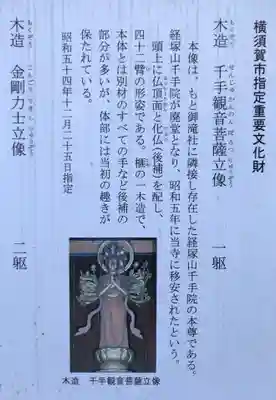 横須賀市指定重要文化財
木造 千手観音菩薩立像 一躯
もくぞう せんじゅかんのんぼさつりゅうぞう
本像は、もと御滝社に隣接し存在した経塚山千手院の本尊である。
経塚山千手院が廃堂となり、昭和五年に当寺に移安されたという。
頭上に仏頂面と化仏(後補)を配し、
四十二臂の形姿である。榧の一木造で、
本体とは別材のすべての手など後補の
部分が多いが、体部には当初の趣きが
保たれている。
昭和五十四年十二月二十五日指定
木造 金剛力士立像 二躯
もくぞう こんごうりきしりゅうぞう
木造 千手観音菩薩立像